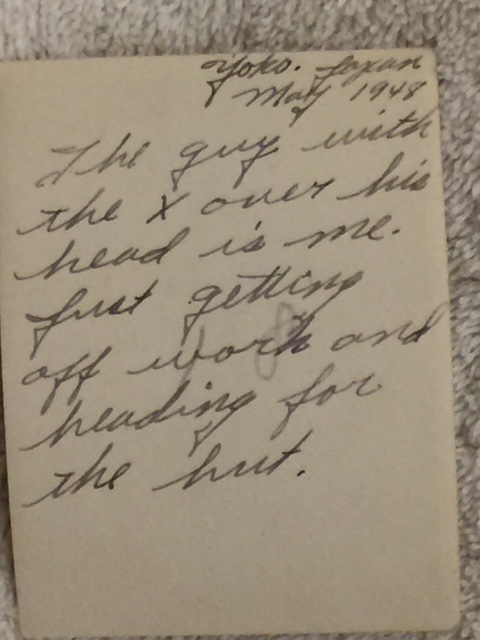 Yoko. Japan
May 1948
The guy with
the X over his
head is me.
Just getting
off work and
heading for
the hut.